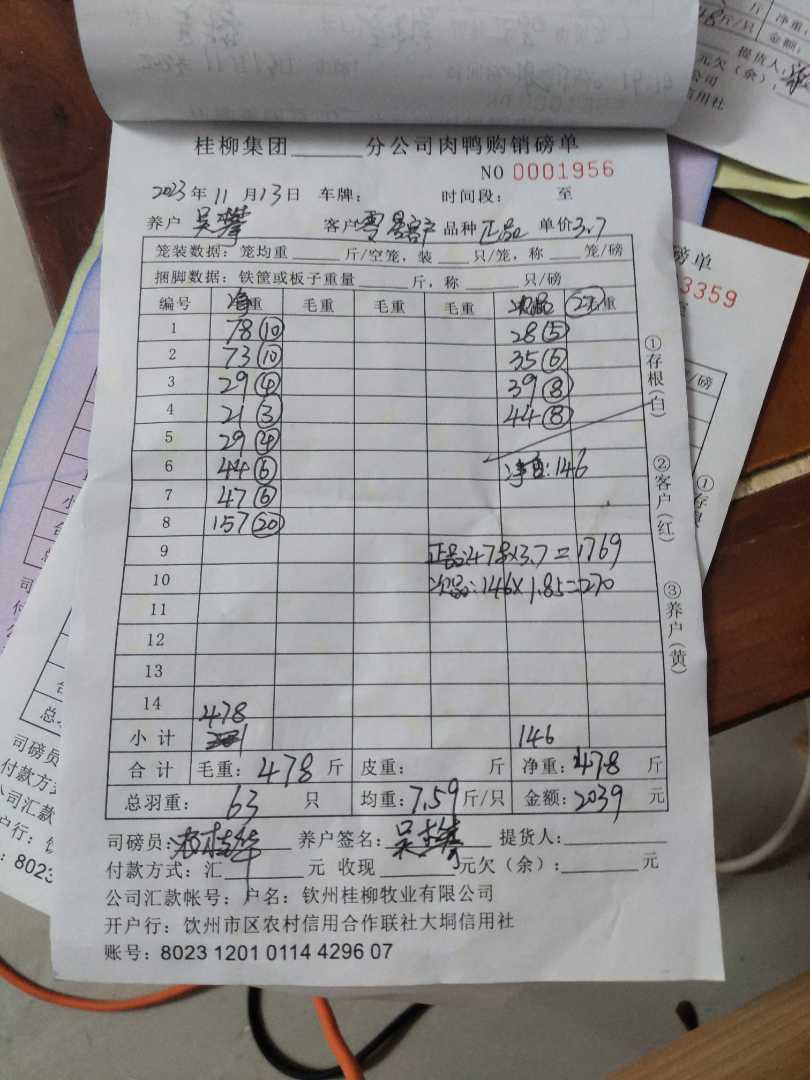 桂柳集团______分公司肉鸭购销磅单
NO 0001956
2023年11月13日 车牌： 时间段： 至
养户 吴攀 客户零星客户 品种 正品 单价3.7
笼装数据：笼均重______斤/空笼，装____只/笼，称____笼/磅
捆脚数据：铁筐或板子重量______斤，称______只/磅
编号 净重 毛重 毛重 毛重 次品 毛重
1 78⑩ 28⑤
2 73⑩ 35⑥
3 29④ 39⑧
4 21③ 44⑧
5 29④
6 44⑥ 净重:146
7 47⑥
8 157⑳
9 正品:478×3.7=1769
10 次品:146×1.85=270
11
12
13
14 478
小计 146
合计 毛重：478斤 皮重： 斤 净重：478斤
总羽重： 63 只 均重：7.59斤/只 金额：2039元
司磅员： 养户签名：吴攀 提货人：
付款方式：汇______元 收现______元欠（余）：______元
公司汇款帐号：户名：钦州桂柳牧业有限公司
开户行：钦州市区农村信用合作联社大垌信用社
账号：8023 1201 0114 4296 07
①存根(白)
②客户(红)
③养户(黄)
磅单
3359
至
/磅
①存根
司磅员
付款方式
公司汇款
8023
斤 净重：
斤/只 金额：
提货人：
元欠（余）：
公司
信用社